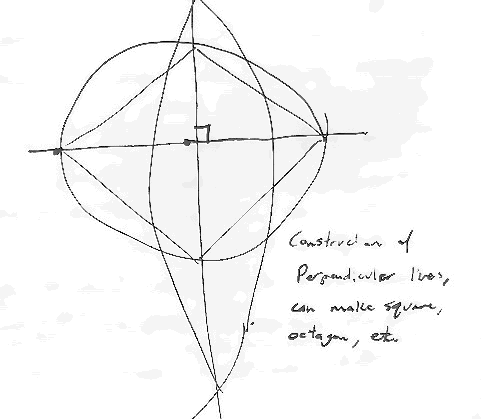 Construction of
Perpendicular lines,
can make square,
octagon, etc.